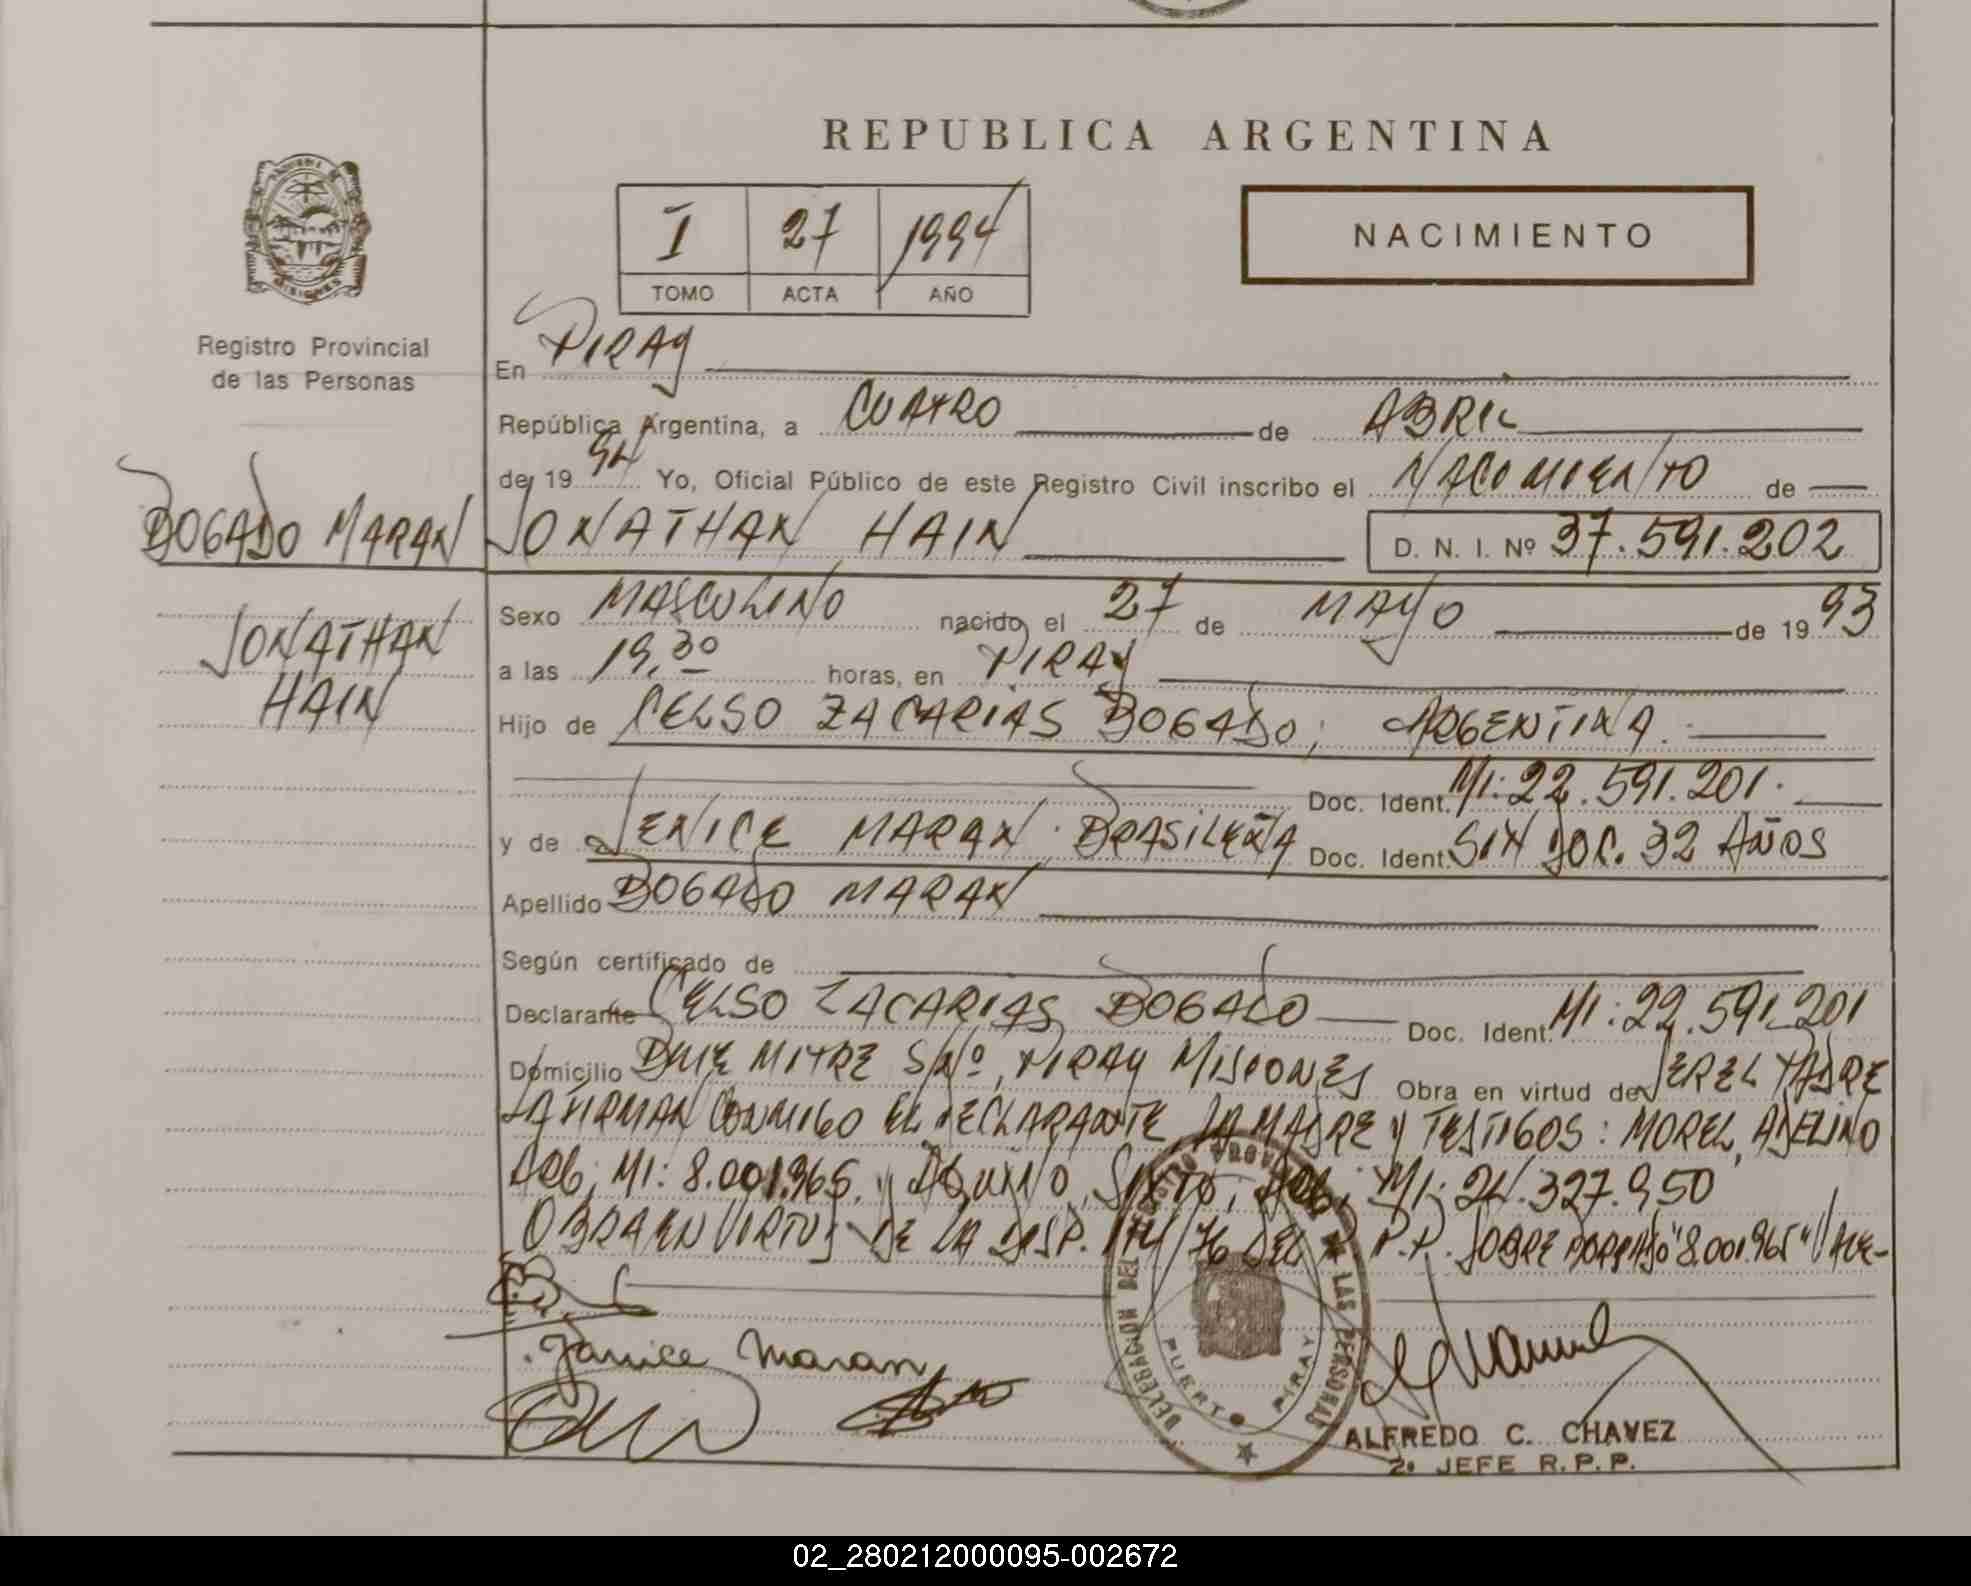 REPUBLICA ARGENTINA
I 27 1994
TOMO ACTA AÑO
NACIMIENTO
Registro Provincial
de las Personas
BOGADO MARAN
JONATHAN
HAIN
En PIRAY
República Argentina, a CUATRO de ABRIL
de 1994 Yo, Oficial Público de este Registro Civil inscribo el NACIMIENTO de
JONATHAN HAIN D. N. I. Nº 37.591.202
Sexo MASCULINO nacido el 27 de MAYO de 1993
a las 19,30 horas, en PIRAY
Hijo de CELSO ZACARIAS BOGADO; ARGENTINA.
Doc. Ident. MI: 22.591.201.
y de JENICE MARAN. BRASILEÑA Doc. Ident. SIN DOC. 32 AÑOS
Apellido BOGADO MARAN
Según certificado de
Declarante CELSO ZACARIAS BOGADO Doc. Ident. MI: 22.591.201
Domicilio MITRE S/Nº, PIRAY MISIONES Obra en virtud de SER EL PADRE
LA FIRMAN CONMIGO EL DECLARANTE LA MADRE Y TESTIGOS: MOREL, ADELINO
ARG, MI: 8.001.965. Y AQUINO, SIXTO, ARG, MI: 24.327.950
OBRA EN VIRTUD DE LA DISP. 174/76 DEL R.P.P. SOBRE BORRADO "8.001.965" VALE-
Janice Maran
DELEGACION DEL REGISTRO PROVINCIAL DE LAS PERSONAS
PUERTO PIRAY
ALFREDO C. CHAVEZ
2º JEFE R.P.P.
02_280212000095-002672